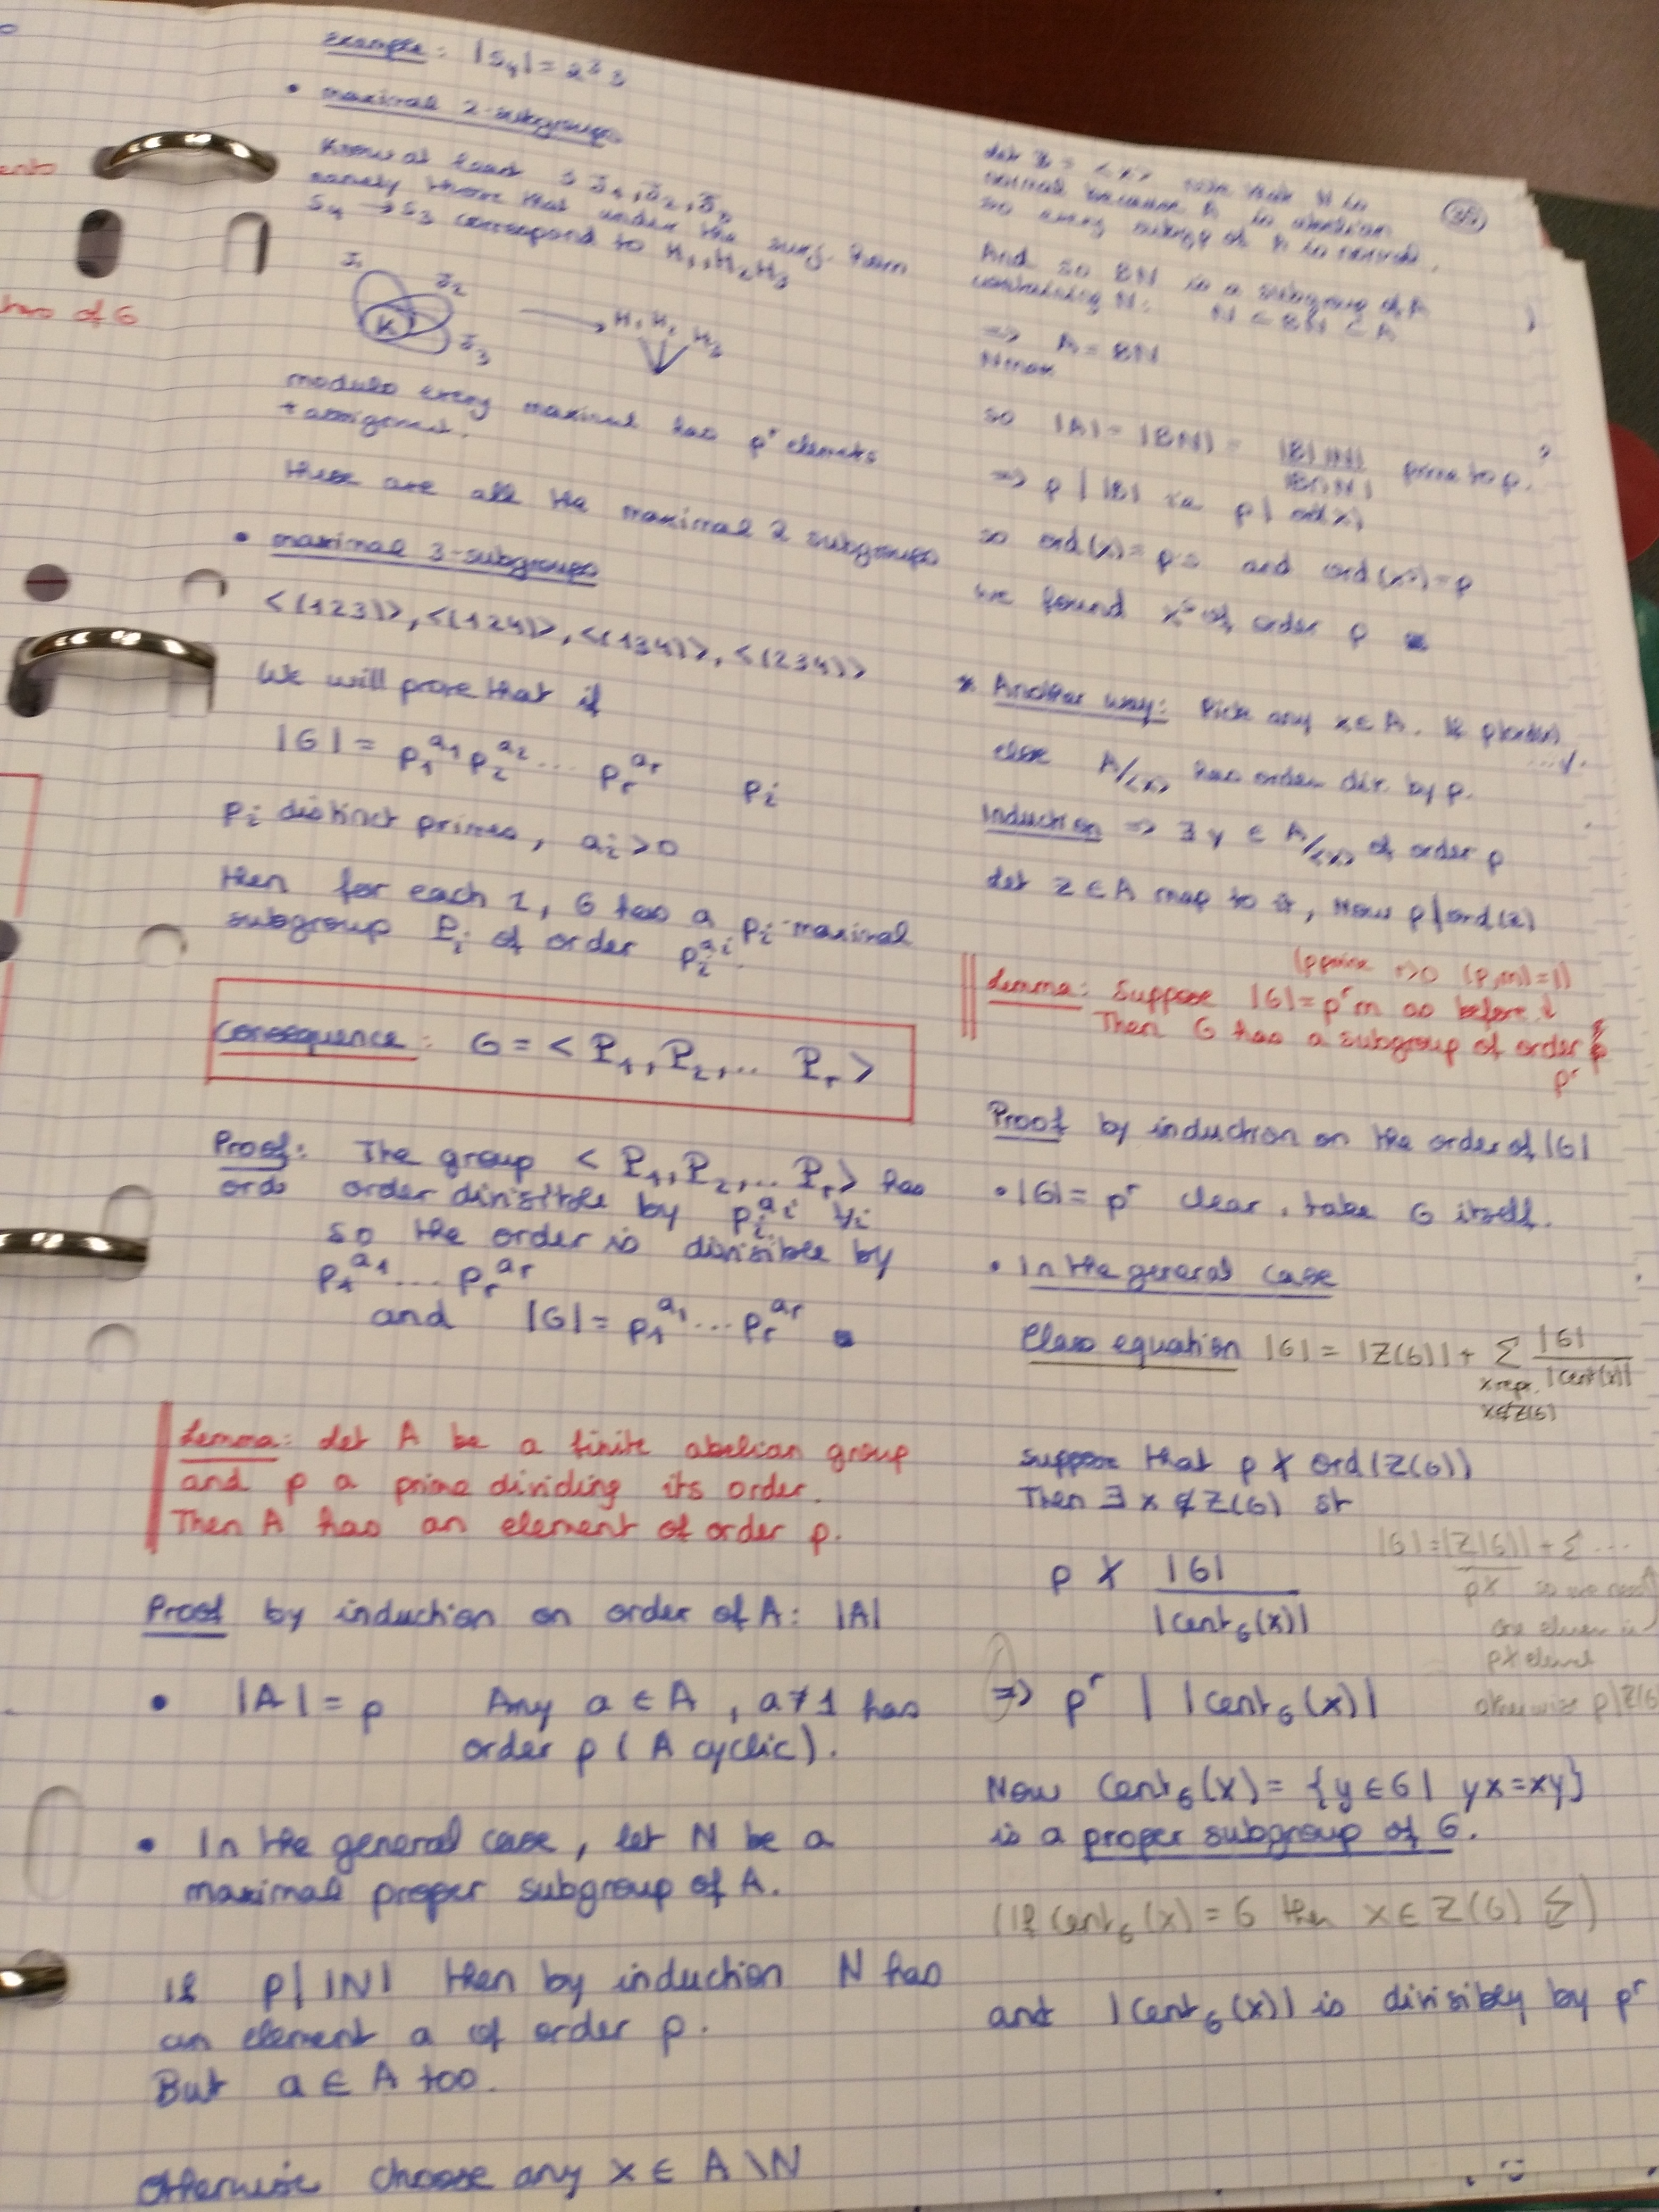 ento
hers of G
example: |S₄| = 2³ 3
• maximal 2-subgroups
Know at least 3 J₁, J₂, J₃
namely those that under the surj. hom
S₄ → S₃ correspond to H₁, H₂, H₃
J₁
J₂
K
J₃
H₁ H₂ H₃
modulo every maximal has pʳ elements
+ assignment.
these are all the maximal 2 subgroups
• maximal 3-subgroups
<(123)>, <(124)>, <(134)>, <(234)>
We will prove that if
|G| = p₁^a₁ p₂^a₂ ... pᵣ^aᵣ pᵢ
pᵢ distinct primes, aᵢ > 0
then for each i, G has a pᵢ-maximal
subgroup Pᵢ of order pᵢ^aᵢ.
Consequence: G = < P₁, P₂, ... Pᵣ >
Proof: The group < P₁, P₂, ... Pᵣ > has
ords order divisible by pᵢ^aᵢ ∀i
so the order is divisible by
p₁^a₁ ... pᵣ^aᵣ
and |G| = p₁^a₁ ... pᵣ^aᵣ ■
Lemma: Let A be a finite abelian group
and p a prime dividing its order.
Then A has an element of order p.
Proof by induction on order of A: |A|
• |A| = p Any a ∈ A, a ≠ 1 has
order p (A cyclic).
• In the general case, let N be a
maximal proper subgroup of A.
If p | |N| then by induction N has
an element a of order p.
But a ∈ A too.
Otherwise choose any x ∈ A \ N
Let B = <x> Note that N is
normal because A is abelian
so every subgp of A is normal.
And so BN is a subgroup of A
containing N: N < BN < A
=> A = BN
N max
so |A| = |BN| = |B| |N| / |B∩N| prime to p. ?
=> p | |B| i.e. p | ord(x)
so ord(x) = p·s and ord(xˢ) = p
We found xˢ of order p ■
* Another way: Pick any x ∈ A. If p|ord(x) ...✓.
else A/<x> has order div. by p.
Induction => ∃ y ∈ A/<x> of order p
Let z ∈ A map to it, Now p | ord(z)
(p prime r>0 (p,m)=1)
Lemma: Suppose |G| = pʳm as before ↓
Then G has a subgroup of order
pʳ
Proof by induction on the order of |G|
• |G| = pʳ clear, take G itself.
• In the general case
Class equation |G| = |Z(G)| + Σ |G| / |Cent(x)|
x repr.
x∉Z(G)
Suppose that p ∤ ord(Z(G))
Then ∃ x ∉ Z(G) st
|G| = |Z(G)| + Σ ...
p∤ so we need
one elem in
p∤ element
otherwise p|Z(G)
p ∤ |G| / |Cent_G(x)|
=> pʳ | |Cent_G(x)|
Now Cent_G(x) = {y ∈ G | yx = xy}
is a proper subgroup of G.
(If Cent_G(x) = G then x ∈ Z(G) Σ)
and |Cent_G(x)| is divisibly by pʳ